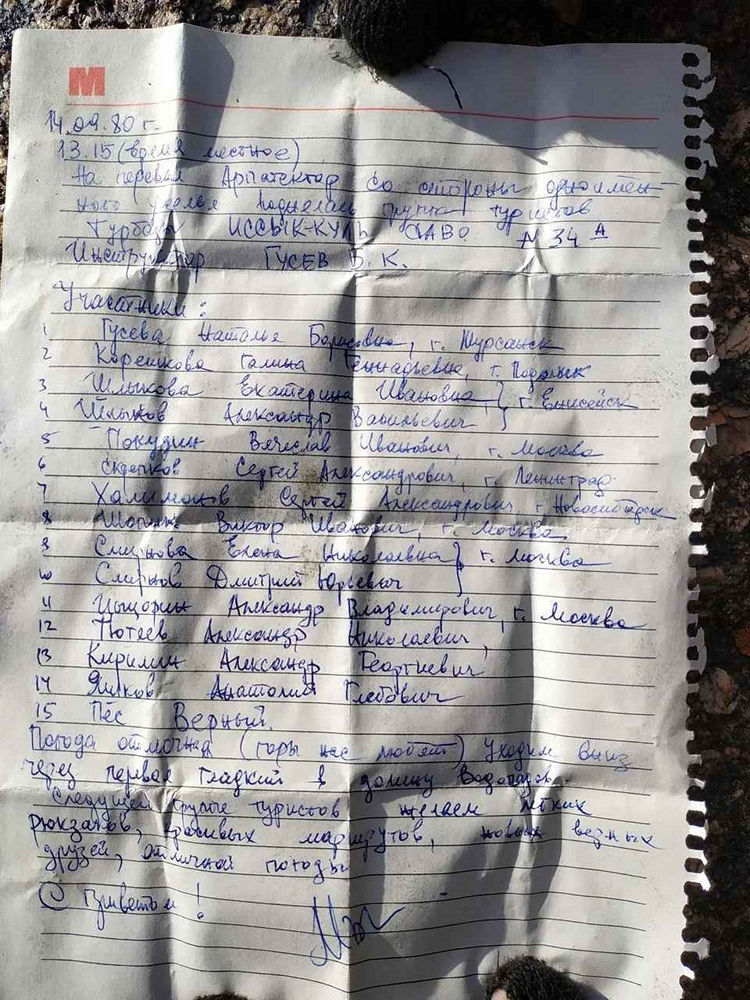 М
14.09.80 г.
13.15 (время местное)
На перевал Арпатектор со стороны одноимен-
ного ущелья поднялась группа туристов
Турбазы ИССЫК-КУЛЬ САВО N 34 А
Инструктор ГУСЕВ Б. К.
Участники:
1 Гусева Наталья Борисовна, г.
2 Корешкова Галина Геннадьевна, г. Подольск
3 Шлыкова Екатерина Ивановна } г. Енисейск
4 Шлыков Александр Васильевич }
5 Покудин Вячеслав Иванович, г. Москва
6 Сергей Александрович, г. Ленинград
7 Халимонов Сергей Александрович, г. Новосибирск
8 Виктор Иванович, г. Москва
9 Смирнова Елена Николаевна } г. Москва
10 Смирнов Дмитрий Юрьевич }
11 Александр Владимирович, г. Москва
12 Александр Николаевич,
13 Кирилин Александр Георгиевич
14 Анатолий Глебович
15 Пёс Верный.
Погода отличная (горы нас любят) Уходим вниз
через перевал Гладкий в долину Водопадов.
Следующей группе туристов желаем лёгких
рюкзаков, красивых маршрутов, новых верных
друзей, отличной погоды
С приветом!